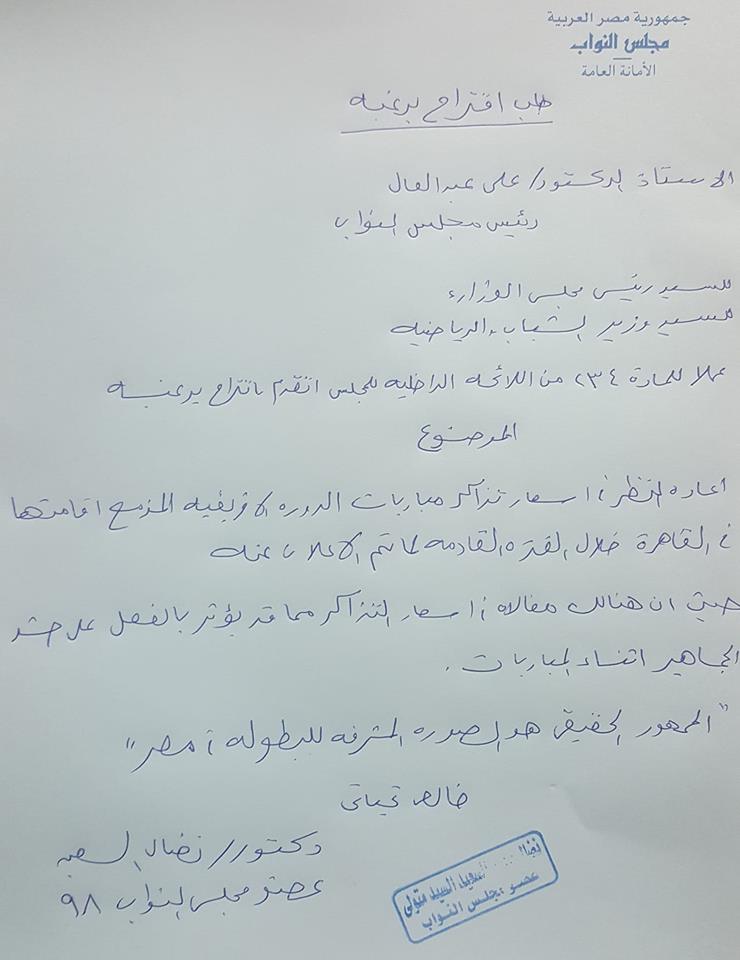 جمهورية مصر العربية
مجلس النواب
الأمانة العامة
طلب اقتراح برغبه
الاستاذ الدكتور/ على عبد العال
رئيس مجلس النواب
للسيد رئيس مجلس الوزراء
للسيد وزير الشباب والرياضيه
عملا للمادة ٢٣٤ من اللائحه الداخليه للمجلس اتقدم باقتراح برغبه
الموضوع
اعاده النظر فى اسعار تذاكر مباريات الدوره الافريقيه المزمع اقامتها
فى القاهرة خلال الفتره القادمه كما تم الاعلان عنه
حيث ان هنالك مغالاه فى اسعار التذاكر مما قد يؤثر بالفعل على حشد
الجماهير اثناء المباريات .
"الجمهور الحقيقى هو الصوره المشرفه للبطوله فى مصر"
خالص تحياتى
دكتور/ نضال السعيد
عضو مجلس النواب ٩٨
السيد متولى
عضو مجلس النواب